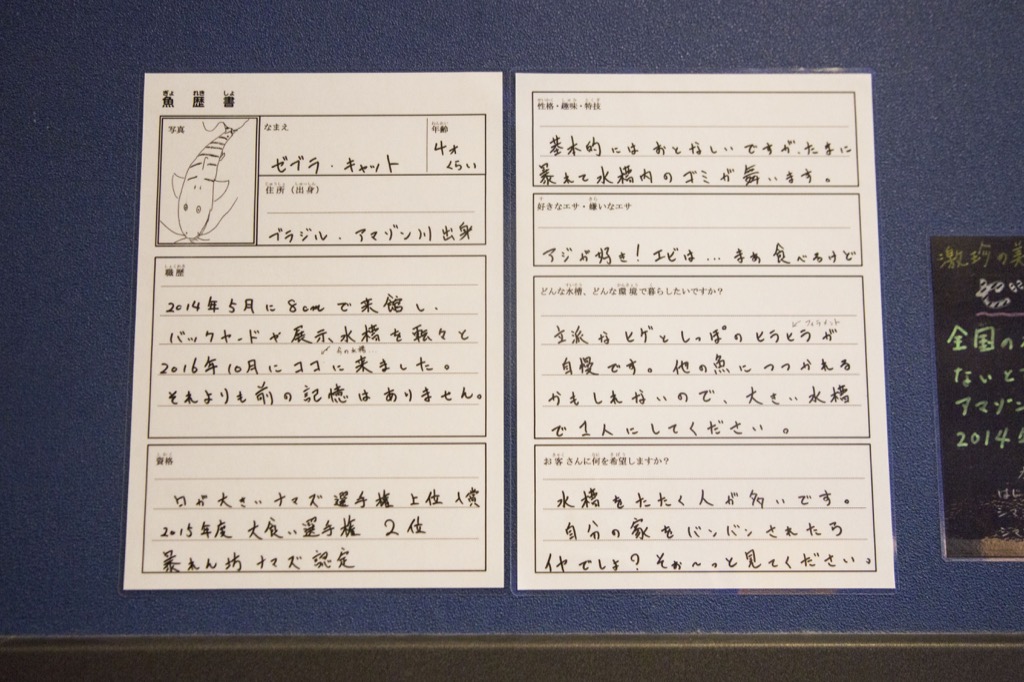 魚歴書
写真
なまえ
ゼブラ・キャット
年齢
4才
くらい
住所（出身）
ブラジル・アマゾン川出身
職歴
2014年5月に8cmで来館し、
バックヤードや展示水槽を転々と
2016年10月にココに来ました。
それよりも前の記憶はありません。
資格
口が大きいナマズ選手権 上位入賞
2015年度 大食い選手権 2位
暴れん坊ナマズ認定
性格・趣味・特技
基本的にはおとなしいですが、たまに
暴れて水槽内のゴミが舞います。
好きなエサ・嫌いなエサ
アジが好き！エビは…まぁ食べるけど
どんな水槽、どんな環境で暮らしたいですか？
フィラメント
立派なヒゲとしっぽのヒラヒラが
自慢です。他の魚につつかれる
かもしれないので、大きい水槽
で1人にしてください。
お客さんに何を希望しますか？
水槽をたたく人が多いです。
自分の家をバンバンされたら
イヤでしょ？そぉ〜っと見てください。
激珍の
全国の
ないと
アマゾン
2014